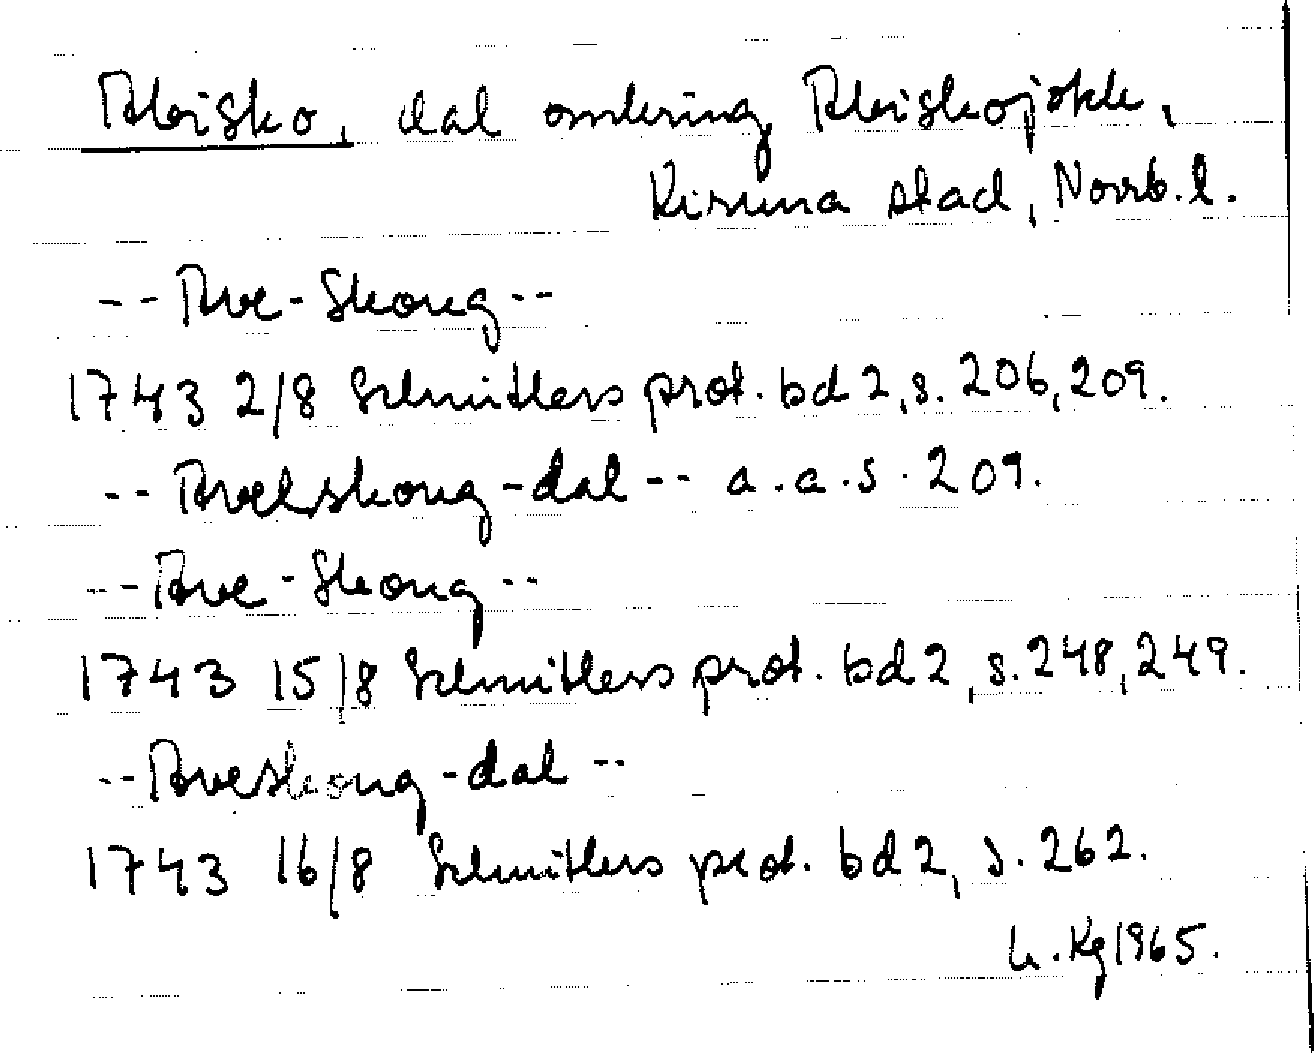 Abisko, dal omkring Abiskojokk,
Kiruna stad, Norrb. l.
-- Ave-Skoug --
1743 2/8 Schnitlers prot. bd 2, s. 206, 209.
-- Avelskoug-dal -- a.a.s. 209.
-- Ave-Skoug --
1743 15/8 Schnitlers prot. bd 2, s. 248, 249.
-- Aveskoug-dal --
1743 16/8 Schnitlers prot. bd 2, s. 262.
Kg 1965.